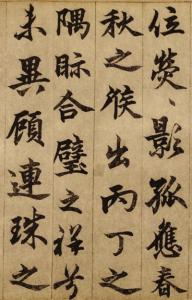 位熒熒影孤應春
秋之候出丙丁之
隅眎合璧之祥兮
未異顧連珠之